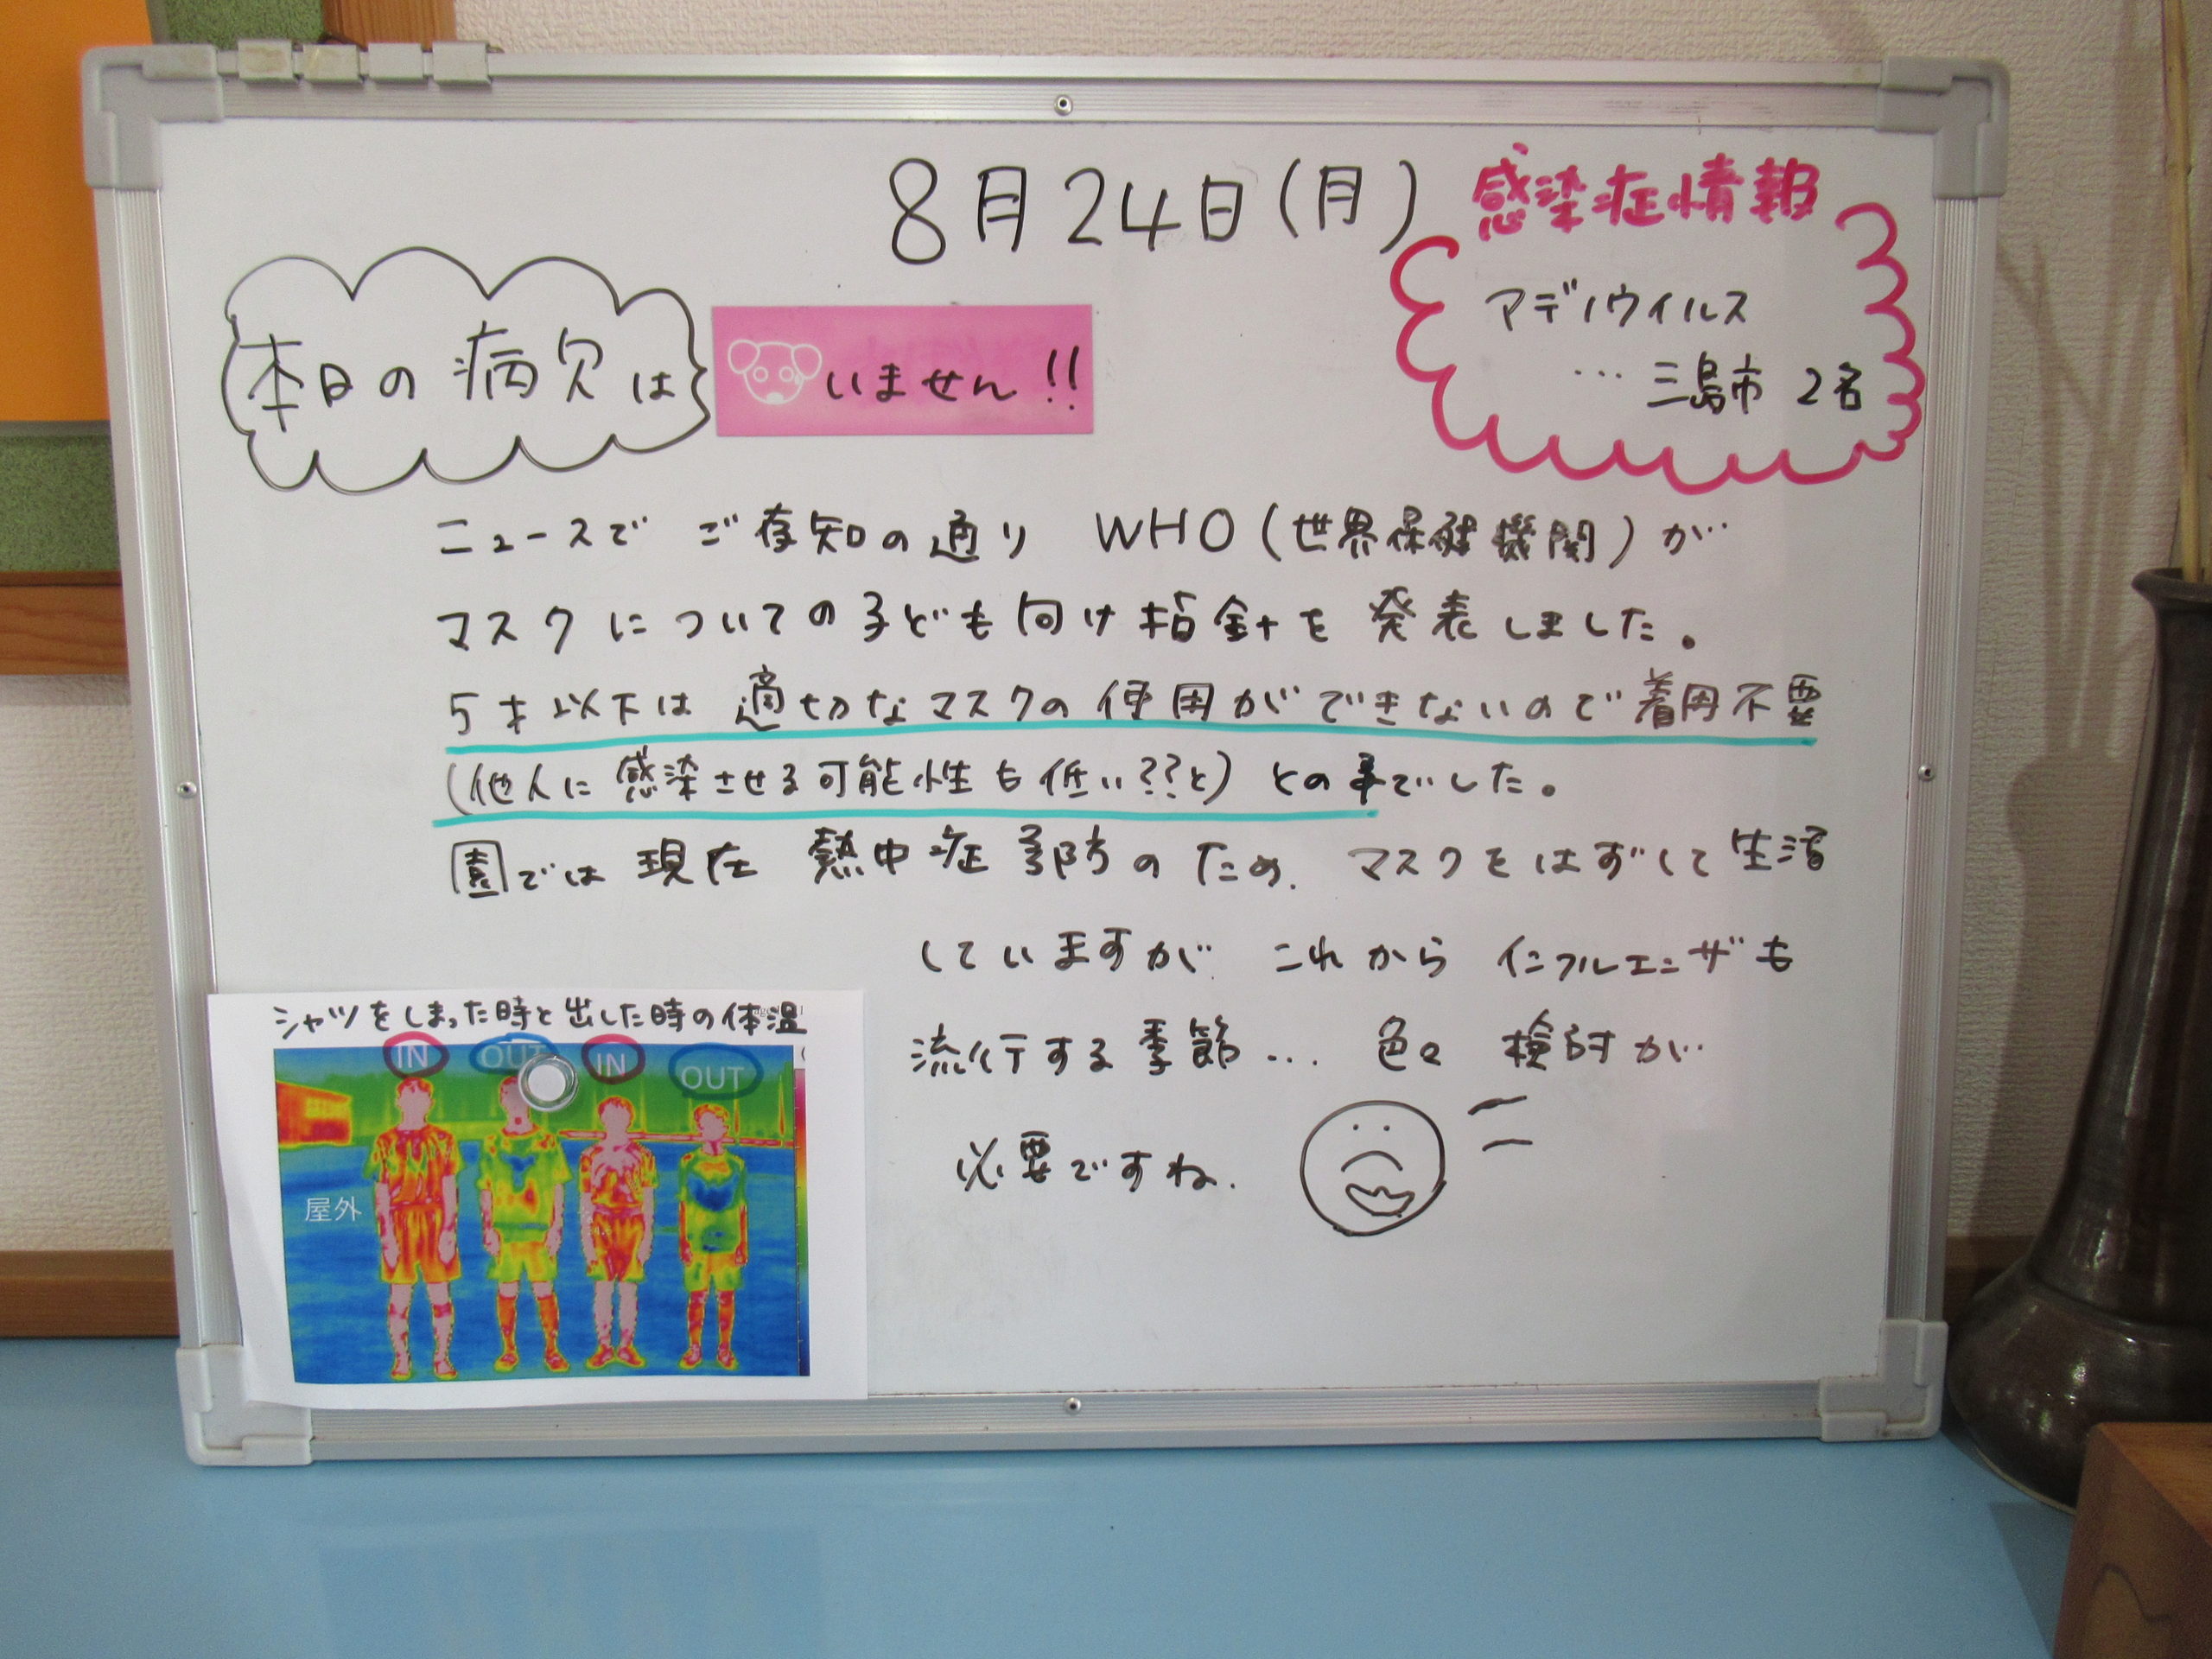 8月24日(月)
感染症情報
アデノウイルス
… 三島市 2名
本日の病欠は
いません!!
ニュースで ご存知の通り WHO(世界保健機関)が
マスクについての子ども向け指針を発表しました。
5才以下は 適切なマスクの使用ができないので着用不要
(他人に感染させる可能性も低い??と)との事でした。
園では現在 熱中症予防のため、マスクをはずして生活
していますが これから インフルエンザも
流行する季節… 色々 検討が
必要ですね.
シャツをしまった時と出した時の体温
IN OUT IN OUT
屋外